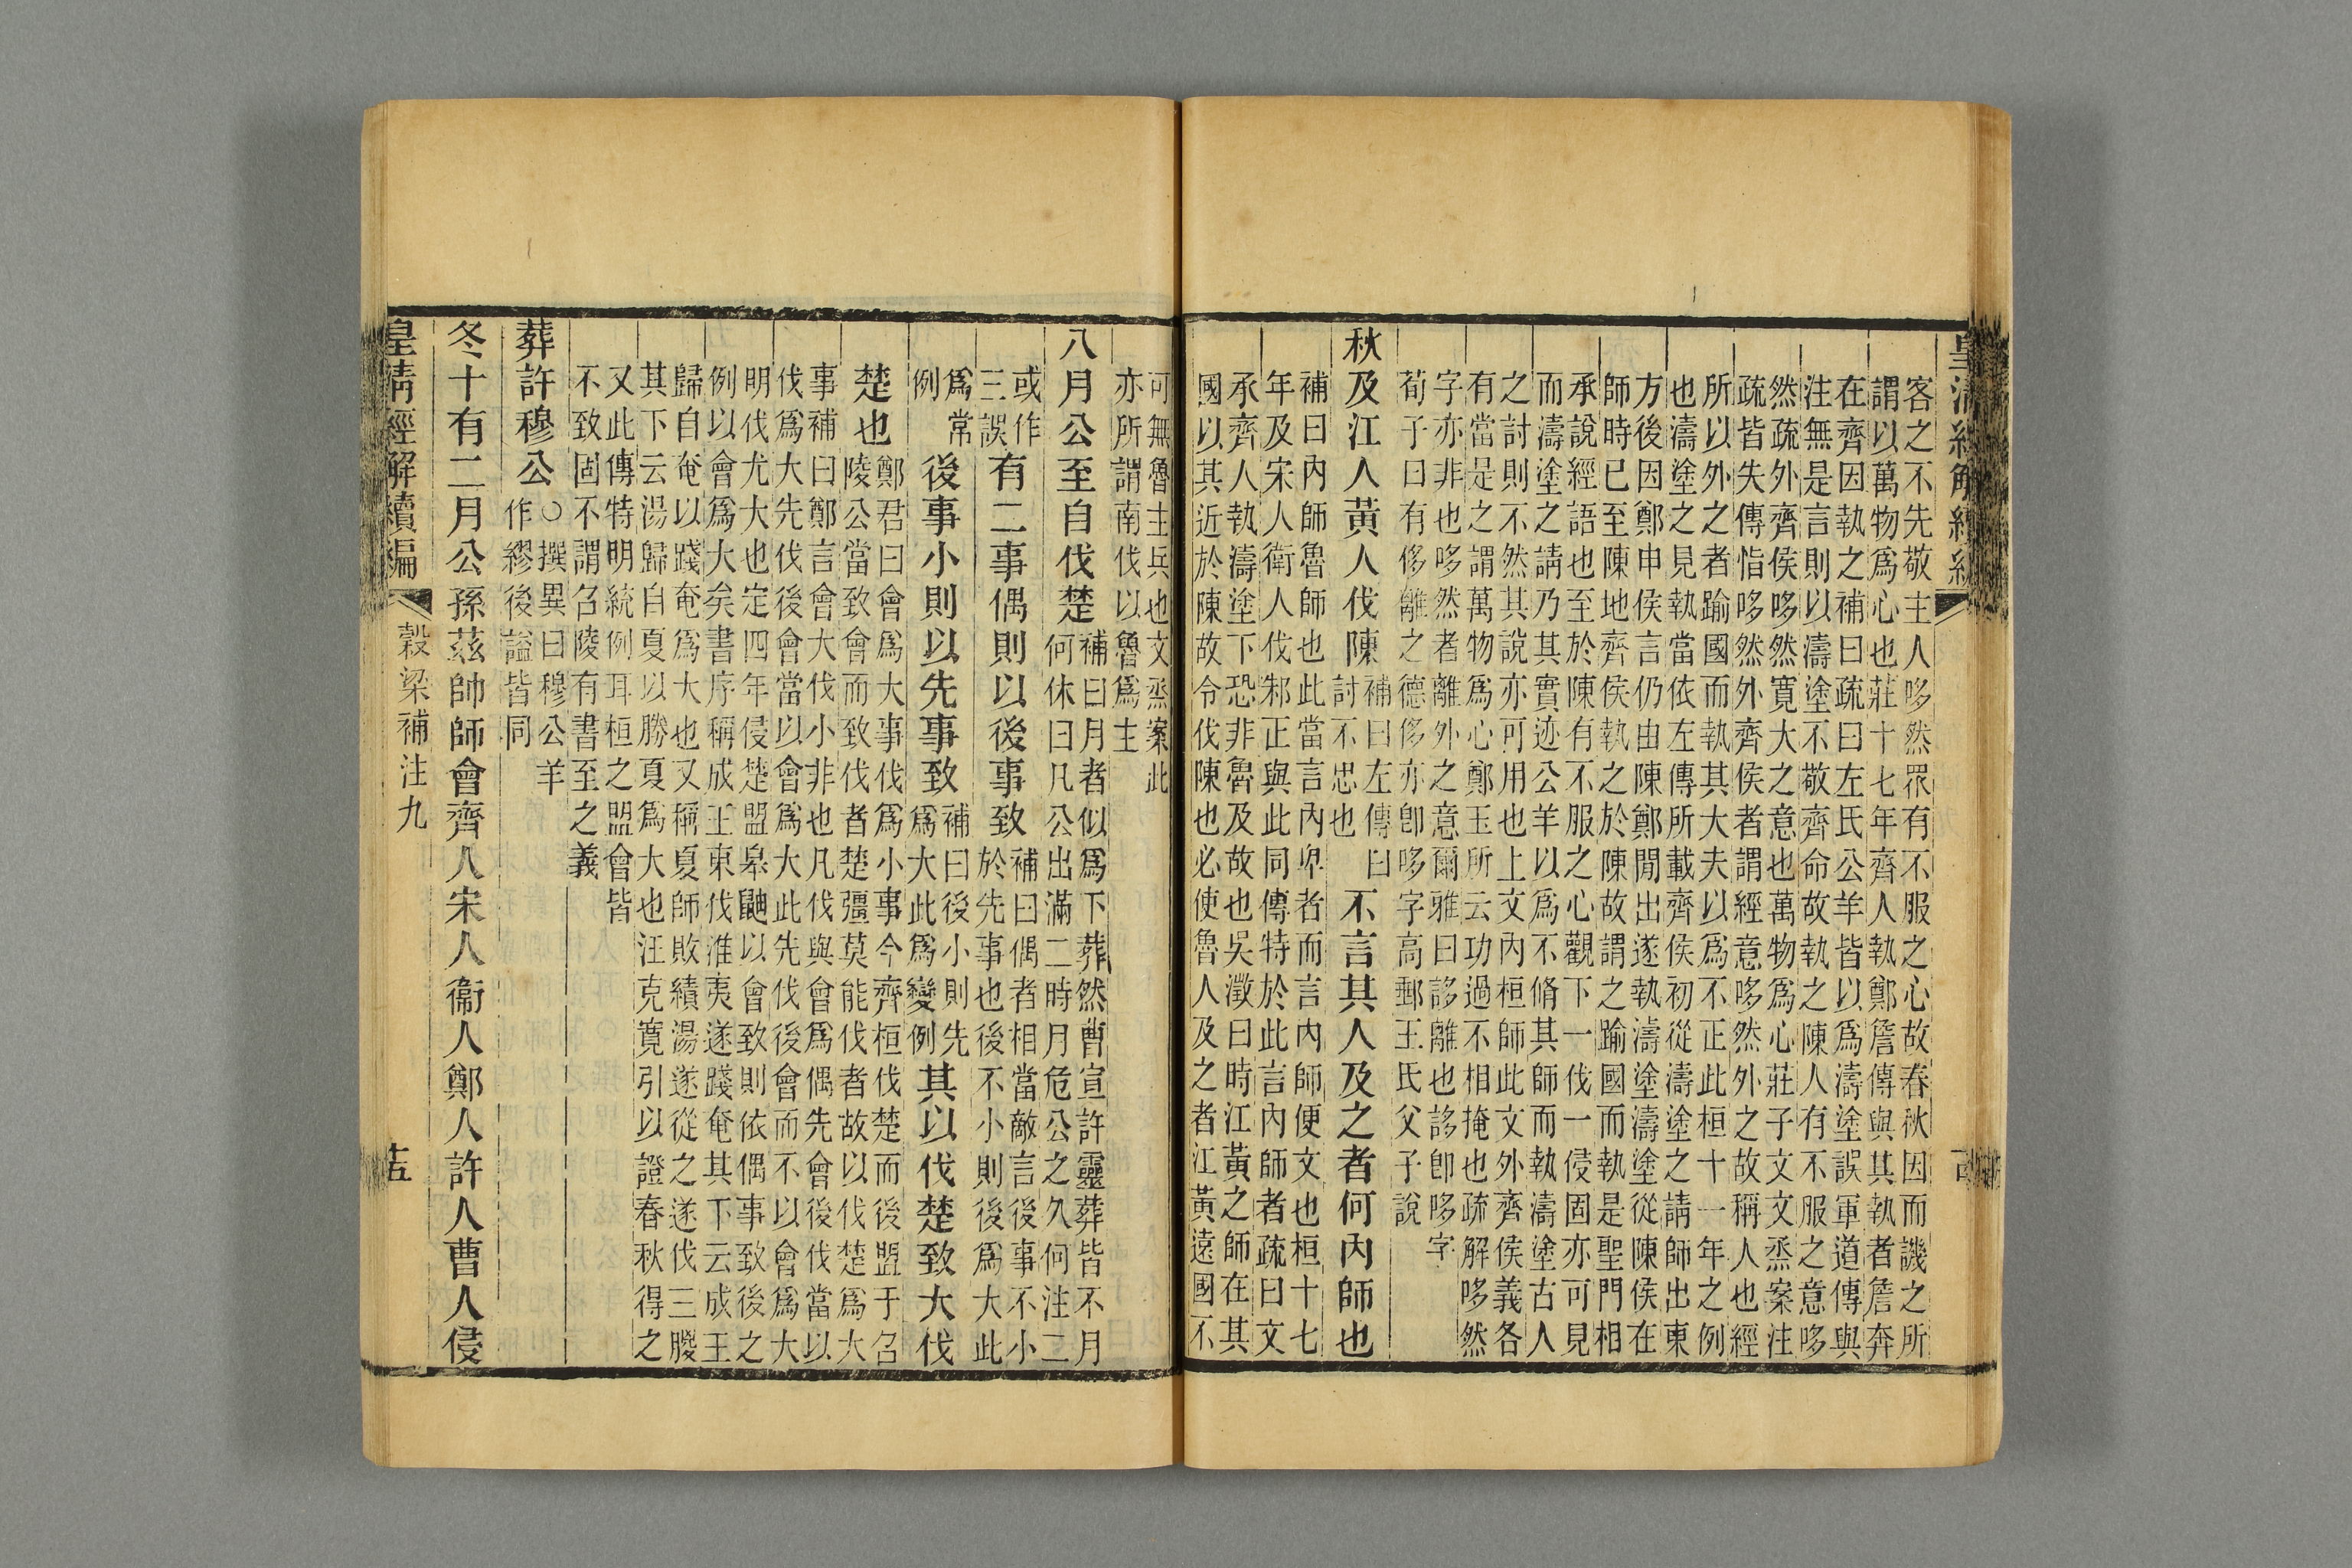 皇清經解續編
客之不先敬主人哆然眾有不服之心故春秋因而譏之所
謂以萬物爲心也莊十七年齊人執鄭詹傳與其執者詹奔
在齊因執之補曰疏曰左氏公羊皆以爲濤塗誤軍道傳與
注無是言則以濤塗不敬齊命故執之陳人有不服之意哆
然疏外齊侯哆然寬大之意也萬物爲心莊子文文烝案注
疏皆失傳恉哆然外齊侯者謂經意哆然外之故稱人也經
所以外之者踰國而執其大夫以爲不正此桓十一年之例
也濤塗之見執當依左傳所載齊侯初從濤塗之請師出東
方後因鄭申侯言仍由陳鄭閒出遂執濤塗濤塗從陳侯在
師時已至陳地齊侯執之於陳故謂之踰國而執是聖門相
承說經語也至於陳有不服之心觀下一伐一侵固亦可見
而濤塗之請乃其實迹公羊以爲不脩其師而執濤塗古人
之討則不然其說亦可用也上文內桓師此文外齊侯義各
有當是之謂萬物爲心鄭玉所云功過不相掩也疏解哆然
字亦非也哆然者離外之意爾雅曰誃離也誃卽哆字
荀子曰有侈離之德侈亦卽哆字高郵王氏父子說
秋及江人黃人伐陳補曰左傳曰討不忠也不言其人及之者何內師也
補曰內師魯師也此當言內卑者而言內師便文也桓十七
年及宋人衛人伐邾正與此同傳特於此言內師者疏曰文
承齊人執濤塗下恐非魯及故也吳澂曰時江黃之師在其
國以其近於陳故令伐陳也必使魯人及之者江黃遠國不
可無魯主兵也文烝案此
亦所謂南伐以魯爲主
八月公至自伐楚補曰月者似爲下葬然曹宣許靈葬皆不月何休曰凡公出滿二時月危公之久何注二
或作三誤有二事偶則以後事致補曰偶者相當敵言後事不小於先事也後不小則後爲大此
爲常例後事小則以先事致補曰後小則先爲大此爲變例其以伐楚致大伐
楚也鄭君曰會爲大事伐爲小事今齊桓伐楚而後盟于召陵公當致會而致伐者楚彊莫能伐者故以伐楚爲大
事補曰鄭言會大伐小非也凡伐與會爲偶先會後伐當以
伐爲大先伐後會當以會爲大此先伐後會而不以會爲大
明伐尤大也定四年侵楚盟皋鼬以會致則依偶事致後之
例以會爲大矣書序稱成王東伐淮夷遂踐奄其下云成王
歸自奄以踐奄爲大也又稱夏師敗績湯遂從之遂伐三朡
其下云湯歸自夏以勝夏爲大也汪克寬引以證春秋得之
又此傳特明統例耳桓之盟會皆
不致固不謂召陵有書至之義
葬許穆公○撰異曰穆公羊作繆後謚皆同
冬十有二月公孫茲帥師會齊人宋人衞人鄭人許人曹人侵
皇清經解續編 穀梁補注九 十五